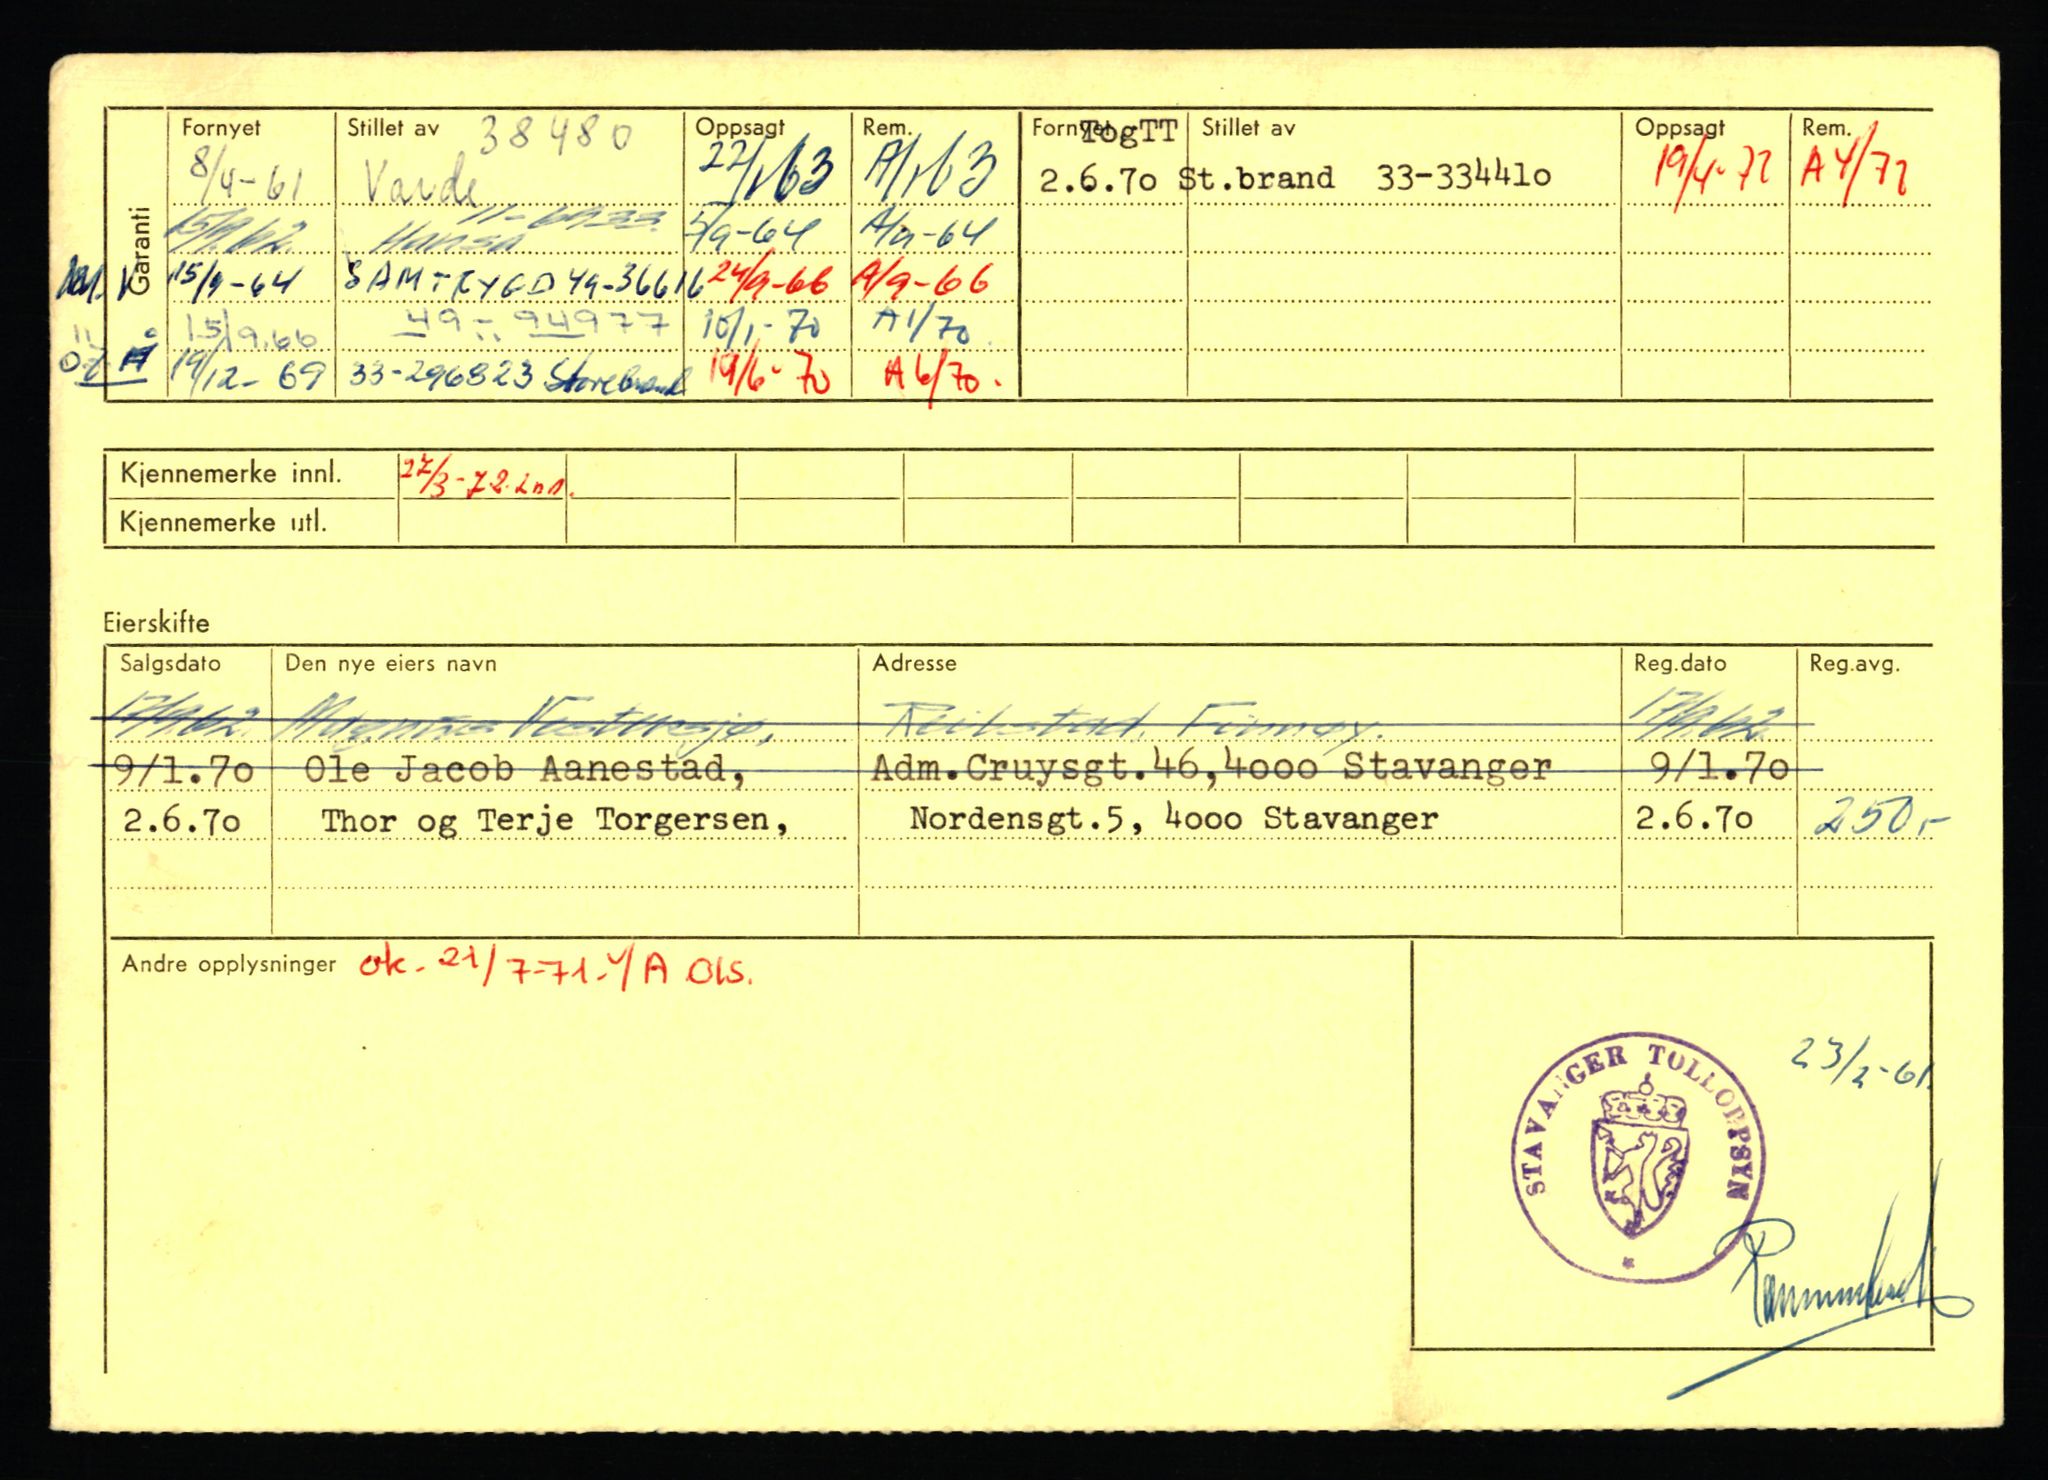 Garanti
Fornyet Stillet av 38480 Oppsagt Rem. Fornyet TogTT Stillet av Oppsagt Rem.
8/4-61 Varde 22/1 63 A/1 63 2.6.70 St.brand 33-334410 19/4-72 A 4/72
15/9.62. Hansa 11-6933. 5/9-64 A/9-64
15/9-64 SAMTRYGD 49-36616 24/9-66 A/9-66
15/9.66 49-94977 10/1-70 A1/70
19/12-69 33-296823 Storebrand 19/6-70 A6/70.
Kjennemerke innl. 27/3-72. inn.
Kjennemerke utl.
Eierskifte
Salgsdato Den nye eiers navn Adresse Reg.dato Reg.avg.
17/9.62. Magnus Vestersjø, Reilstad, Finnøy. 17/9.62.
9/1.70 Ole Jacob Aanestad, Adm.Cruysgt.46,4000 Stavanger 9/1.70
2.6.70 Thor og Terje Torgersen, Nordensgt.5, 4000 Stavanger 2.6.70 250,-
Andre opplysninger ok- 21/7-71- Y/A Ols.
23/2-61.
STAVANGER TOLLOPPSYN